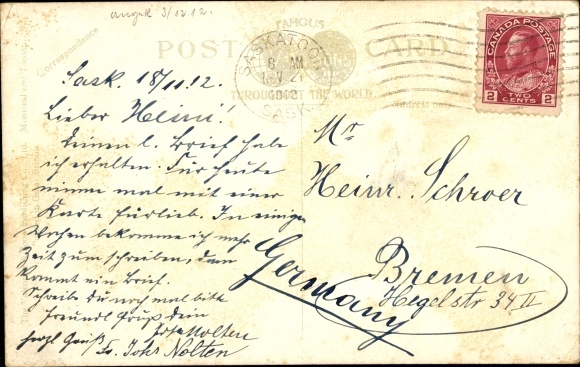 angek 3/12 12.
Correspondence
FAMOUS
POST CARD
SASKATOON
6 AM
NV 21
SASK.
THROUGHOUT THE WORLD
CANADA POSTAGE
2 TWO CENTS 2
Sask. 18/11.12.
Lieber Heini!
Deinen l. Brief habe
ich erhalten. Für heute
nimm mal mit einer
Karte fürlieb. In einigen
Wochen bekomme ich mehr
Zeit zum schreiben, dann
kommt ein Brief.
Schreibe Du noch mal bitte
Freundl Gruß Dein
Nolten
herzl Gruß
Fr. Johs Nolten
Mr
Heinr. Schroer
Bremen
Hegelstr 34 II
Germany